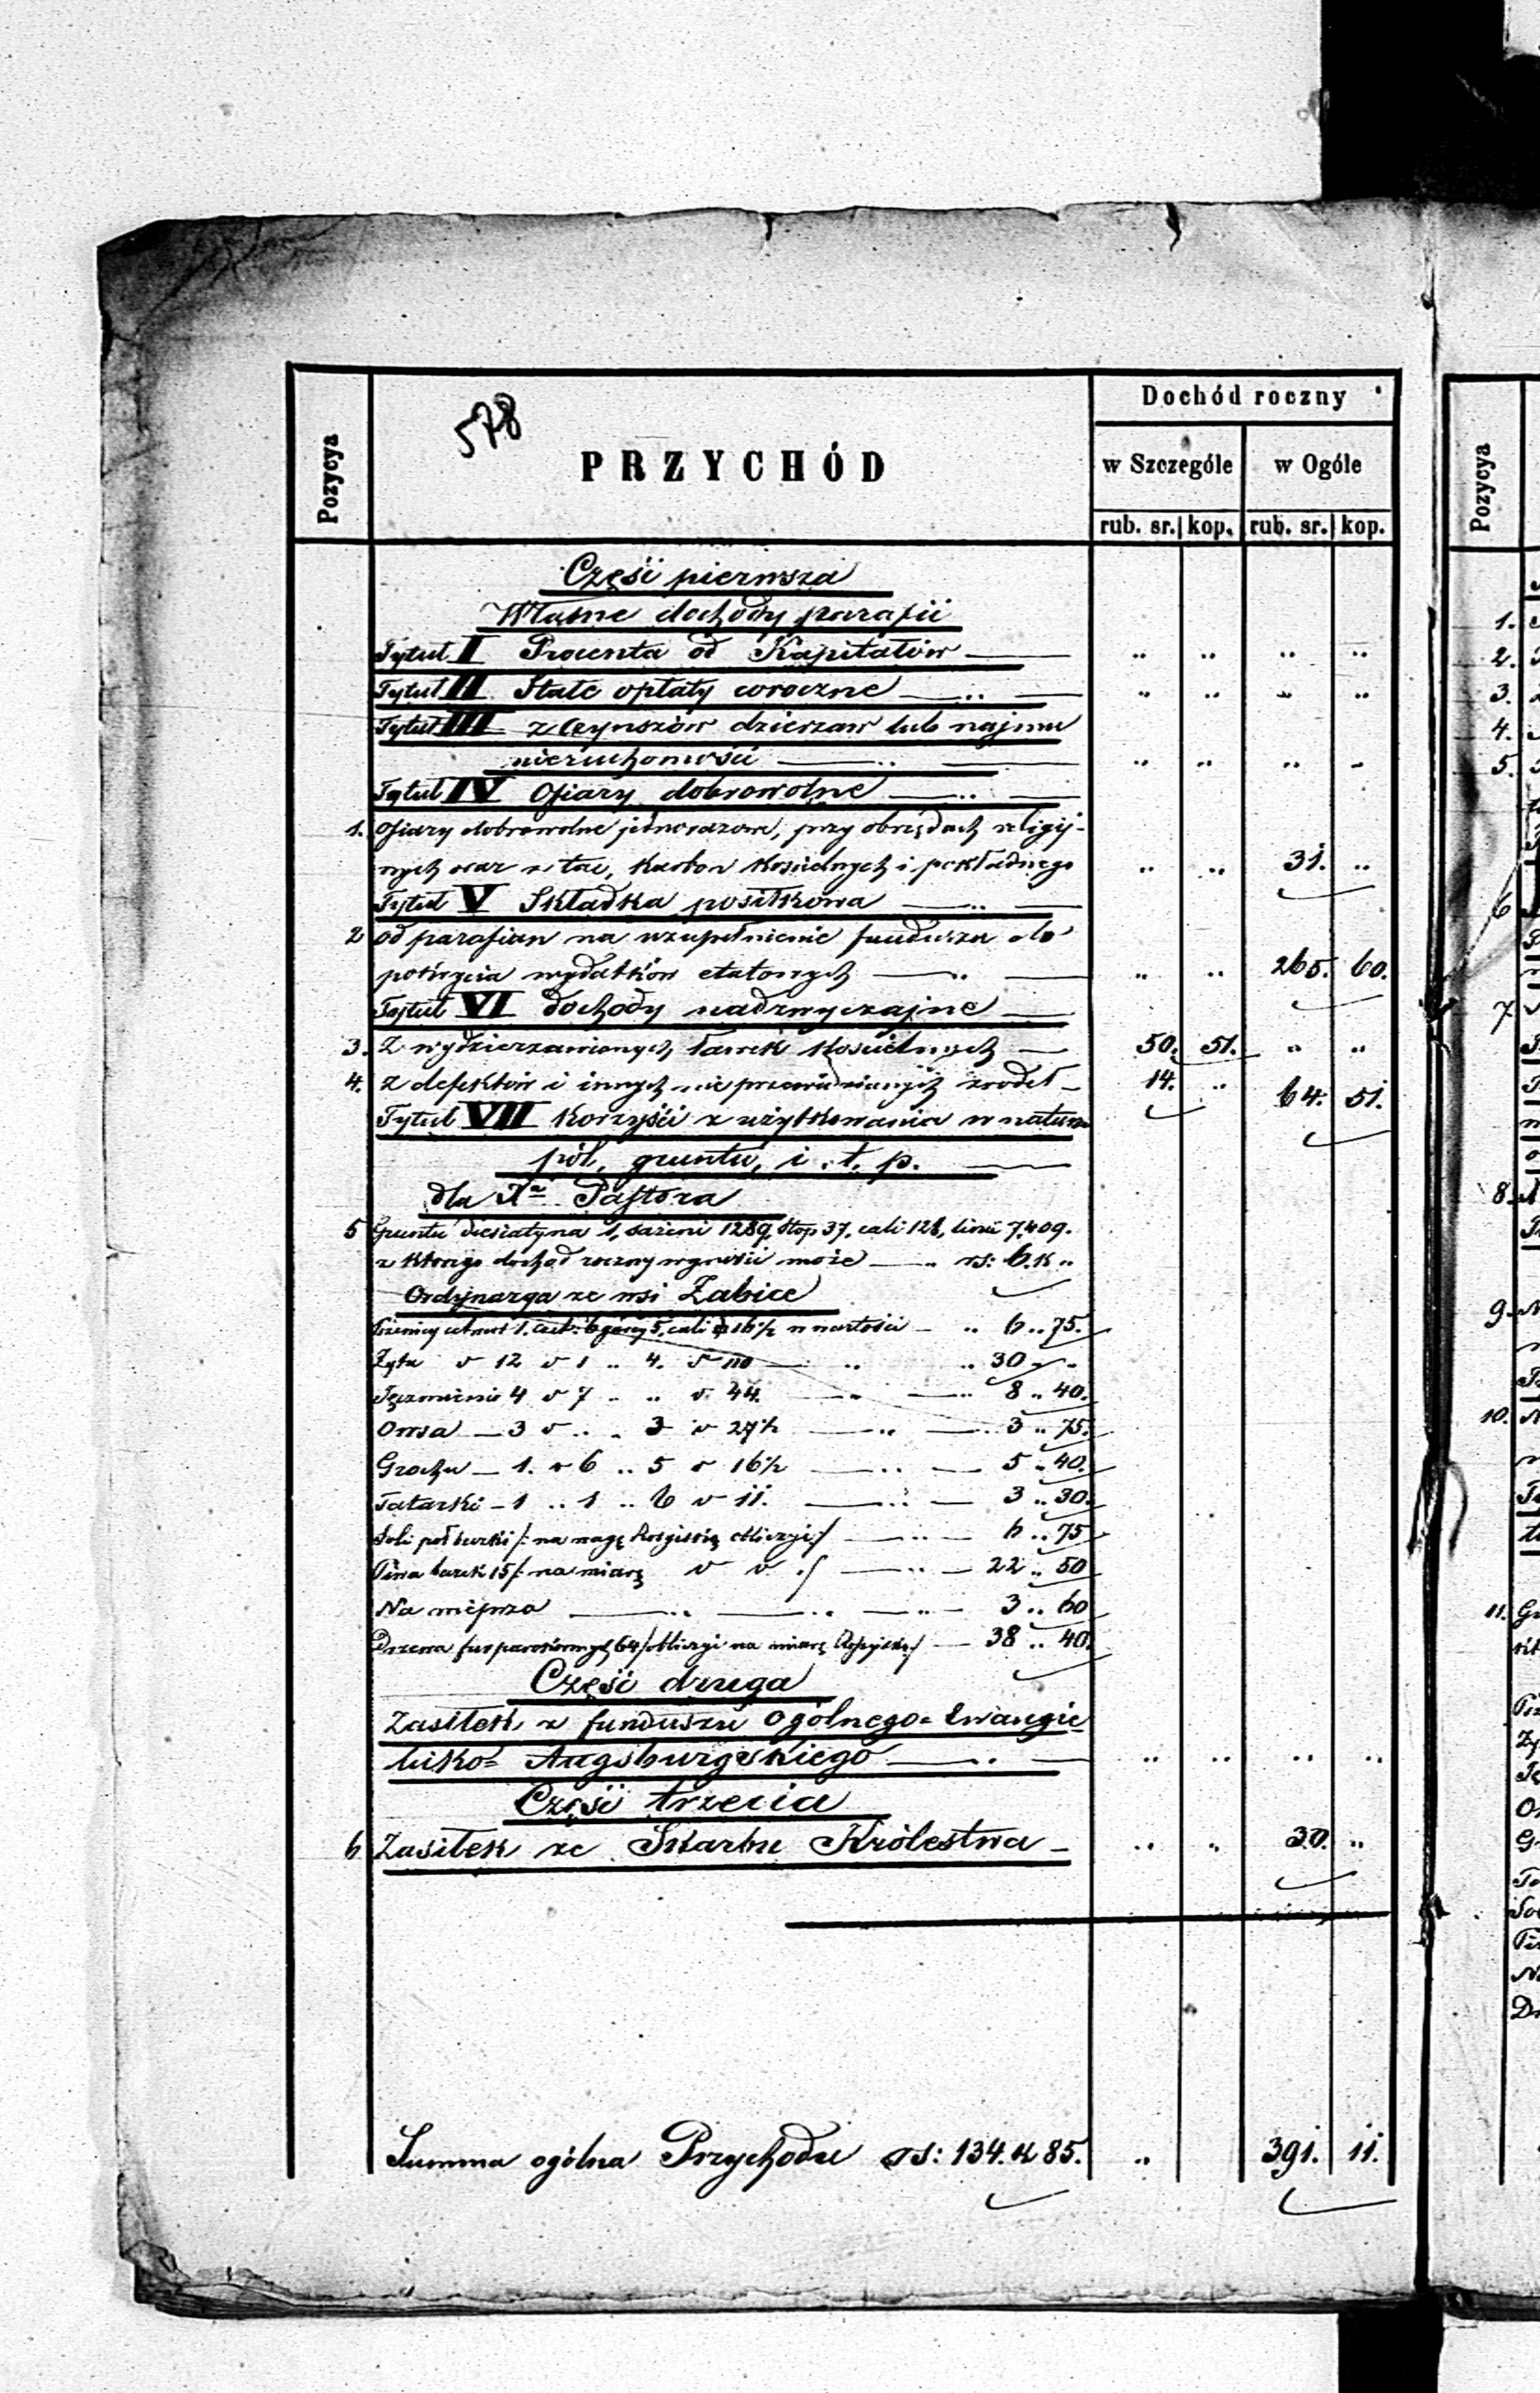 578
Pozycya
PRZYCHÓD
Dochód roczny
w Szczególe w Ogóle
rub. sr. kop. rub. sr. kop.
Część pierwsza
Własne dochody parafii
Tytuł I Procenta od Kapitałów — .. .. .. ..
Tytuł II Stałe opłaty coroczne — .. — .. .. .. ..
Tytuł III z czynszów dzierzaw lub najmu
nieruchomości — .. — .. .. .. ..
Tytuł IV Ofiary dobrowolne — .. —
1. Ofiary dobrowolne jednorazowe, przy obrzędach religij-
nych oraz z tac, karbon Kościelnych i pokładnego .. .. 31. ..
Tytuł V Składka posiłkowa — .. —
2 od parafian na uzupełnienie funduszu do
pokrycia wydatków etatowych — .. — .. .. 265. 60.
Tytuł VI dochody nadzwyczajne —
3. Z wydzierzawionych ławek Kościelnych — 50. 51. .. ..
4. z defektów i innych nieprzewidzianych zrodeł — 14. .. 64. 51.
Tytuł VII Korzyści z użytkowania w naturze
pól, gruntu, i. t. p. —
dla Xa Pastora
5 Gruntu diesiatyna 1, sażeni 1289, stop 37, cali 128, linii 7,409.
z którego dochód roczny wynosić może — .. rs: 6. k ..
Ordynarya ze wsi Żabice
Pszenicy czetwert 1. czet: 6 garcy 5, cali 16½ w wartości — .. 6 .. 75.
Żyta v 12 v 1 .. 4. v 110 — .. .. 30 .. ..
Jęczmienia 4 v 7 .. .. v. 44. — .. — .. 8 .. 40.
Owsa — 3 v .. .. 3 v 27½ — .. — .. 3 .. 75.
Grochu — 1. v 6 .. 5 v 16½ — .. — 5 .. 40.
Tatarki — 1 .. 1 .. 6 v 11. — .. — 3 .. 30.
Soli pół beczki /: na wagę Rosyiską obliczyć :/ — .. — 6 .. 75
Piwa beczek 15 /: na miarę v v :/ — .. — 22 .. 50
Na wieprza — .. — .. — .. — 3 .. 60
Drzewa fur parokonnych 64 /: obliczyć na miarę Rosyiską :/ — 38 .. 40.
Część druga
Zasiłek z funduszu Ogólnego= Ewangie
licko= Augsburgskiego — .. — .. .. .. ..
Część trzecia
6 Zasiłek ze Skarbu Królestwa — .. .. 30. ..
Summa ogólna Przychodu rs: 134. k 85. .. 391. 11.
Pozycya
1.
2.
3.
4.
5.
6
7
8.
9.
10.
11.